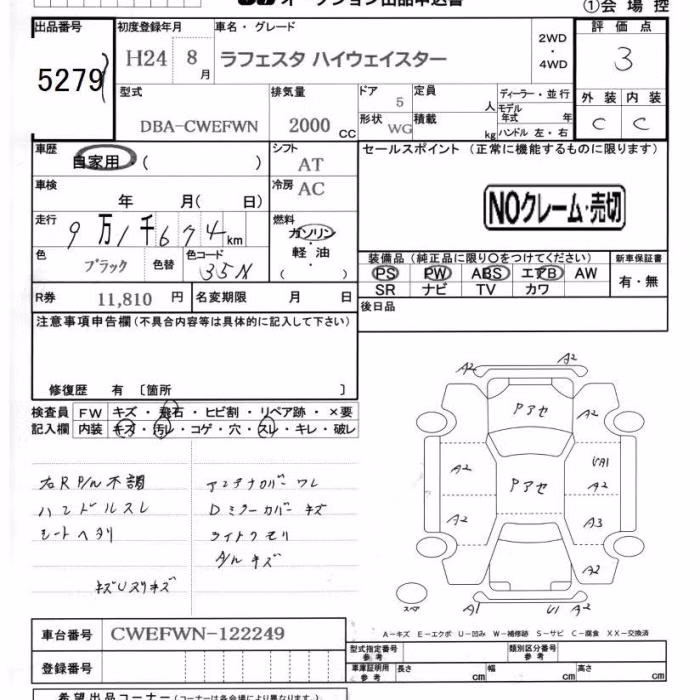 オークション出品申込書 ①会場控
出品番号 初度登録年月 車名・グレード 評価点
5279 H24 8月 ラフェスタ ハイウェイスター 2WD・4WD 3
型式 排気量 ドア 5 定員 人 ディーラー・並行 外装 内装
DBA-CWEFWN 2000 CC 形状 WG 積載 kg モデル年式 年 C C
ハンドル 左・右
車歴 自家用・( ) シフト AT セールスポイント (正常に機能するものに限ります)
車検 年 月( 日) 冷房 AC
NOクレーム・売切
走行 9万1千674km 燃料 ガソリン・軽油・( )
色 ブラック 色替 色コード 35N
装備品(純正品に限り○をつけてください) 新車保証書
PS PW ABS エアB AW 有・無
SR ナビ TV カワ
R券 11,810円 名変期限 月 日 後日品
注意事項申告欄(不具合内容等は具体的に記入して下さい)
修復歴 有 〔箇所 〕
検査員 FW キズ・飛石・ヒビ割・リペア跡・×要
記入欄 内装 キズ・汚レ・コゲ・穴・スレ・キレ・破レ
右RP/W不調 アンテナカバーワレ
ハンドルスレ Dミラーカバーキズ
シートヘタリ ライトクモリ
A/Wキズ
キズUスリキズ
A2 A2
Pアセ A2 A2
A2 Pアセ UA1
A2
A2 A3
A2
スペア A1 U1 A2
A-キズ E-エクボ U-凹み W-補修跡 S-サビ C-腐食 XX-交換済
車台番号 CWEFWN-122249
登録番号
型式指定番号 参考 類別区分番号 参考
車庫証明用 参考 長さ cm 幅 cm 高さ cm
希望出品コーナー(コーナーは各会場により異なります。)